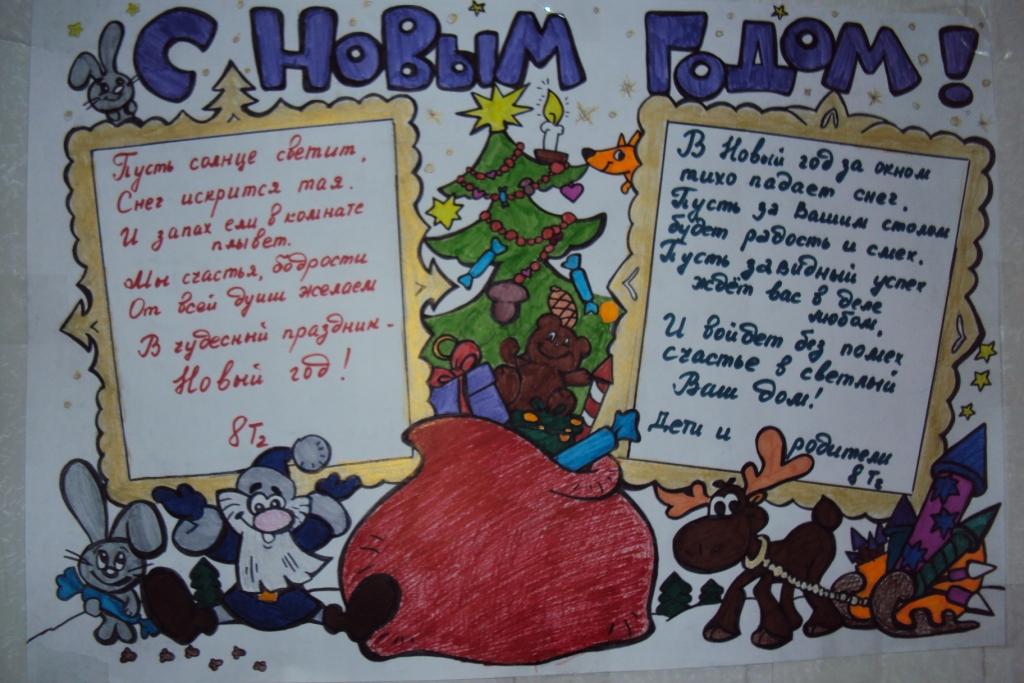 С Новым Годом!
Пусть солнце светит,
Снег искрится тая.
И запах ели в комнате
плывет.
Мы счастья, бодрости
От всей души желаем
В чудесный праздник -
Новый год!
8 Т2
В Новый год за окном
тихо падает снег.
Пусть за Вашим столом
будет радость и смех.
Пусть завидный успех
ждёт вас в деле
любом,
И войдет без помех
счастье в светлый
Ваш дом!
Дети и родители
8 Т2